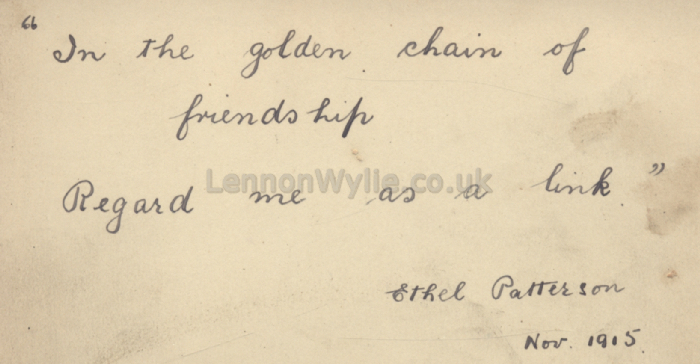 “In the golden chain of
friendship
Regard me as a link.”
LennonWylie.co.uk
Ethel Patterson
Nov. 1915.